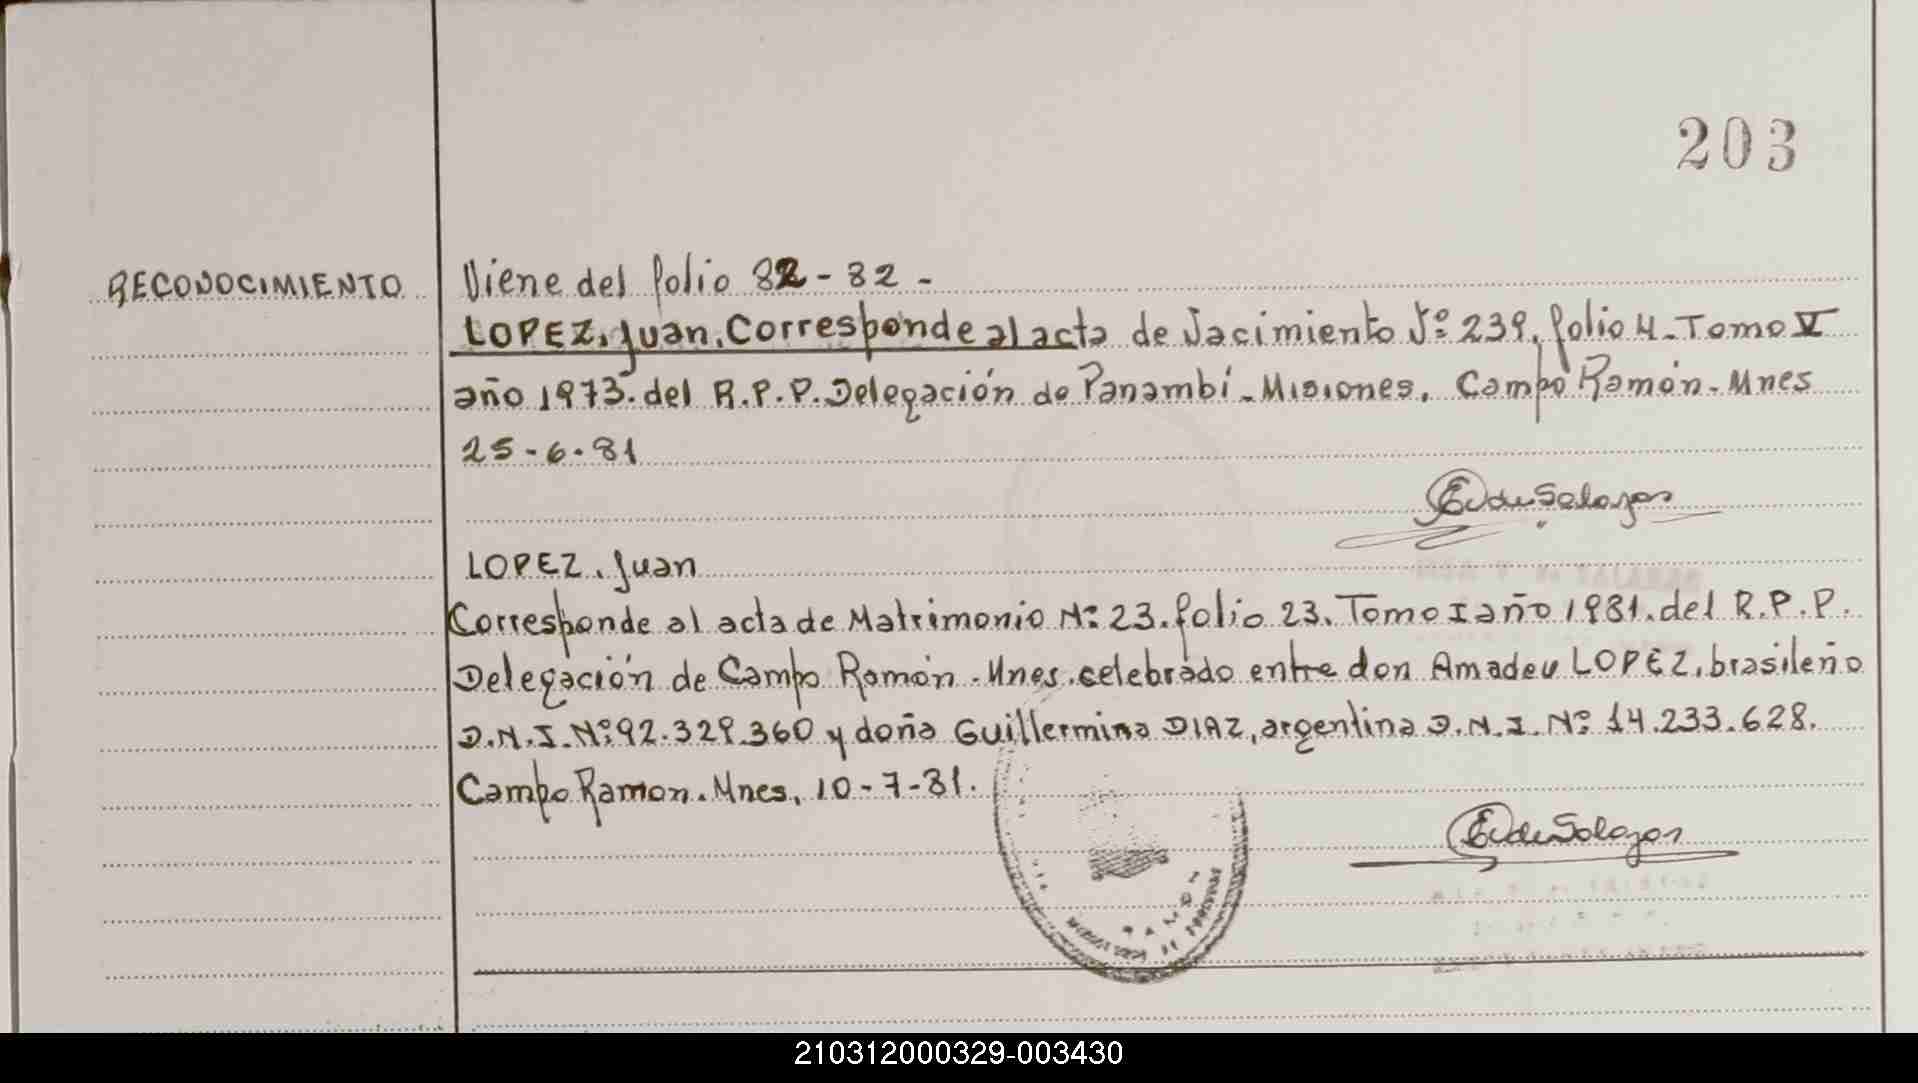 203
RECONOCIMIENTO
Viene del folio 82-82-
LOPEZ, Juan. Corresponde al acta de Nacimiento Nº 239, folio 4-Tomo V
año 1973. del R.P.P. Delegación de Panambí-Misiones. Campo Ramón-Mnes
25-6-81
LOPEZ, Juan
Corresponde al acta de Matrimonio Nº 23. folio 23. Tomo I año 1981. del R.P.P.
Delegación de Campo Ramón-Mnes. celebrado entre don Amadeu LOPEZ, brasileño
D.N.I. Nº 92.329.360 y doña Guillermina DIAZ, argentina D.N.I. Nº 14.233.628.
Campo Ramon. Mnes, 10-7-81.
210312000329-003430